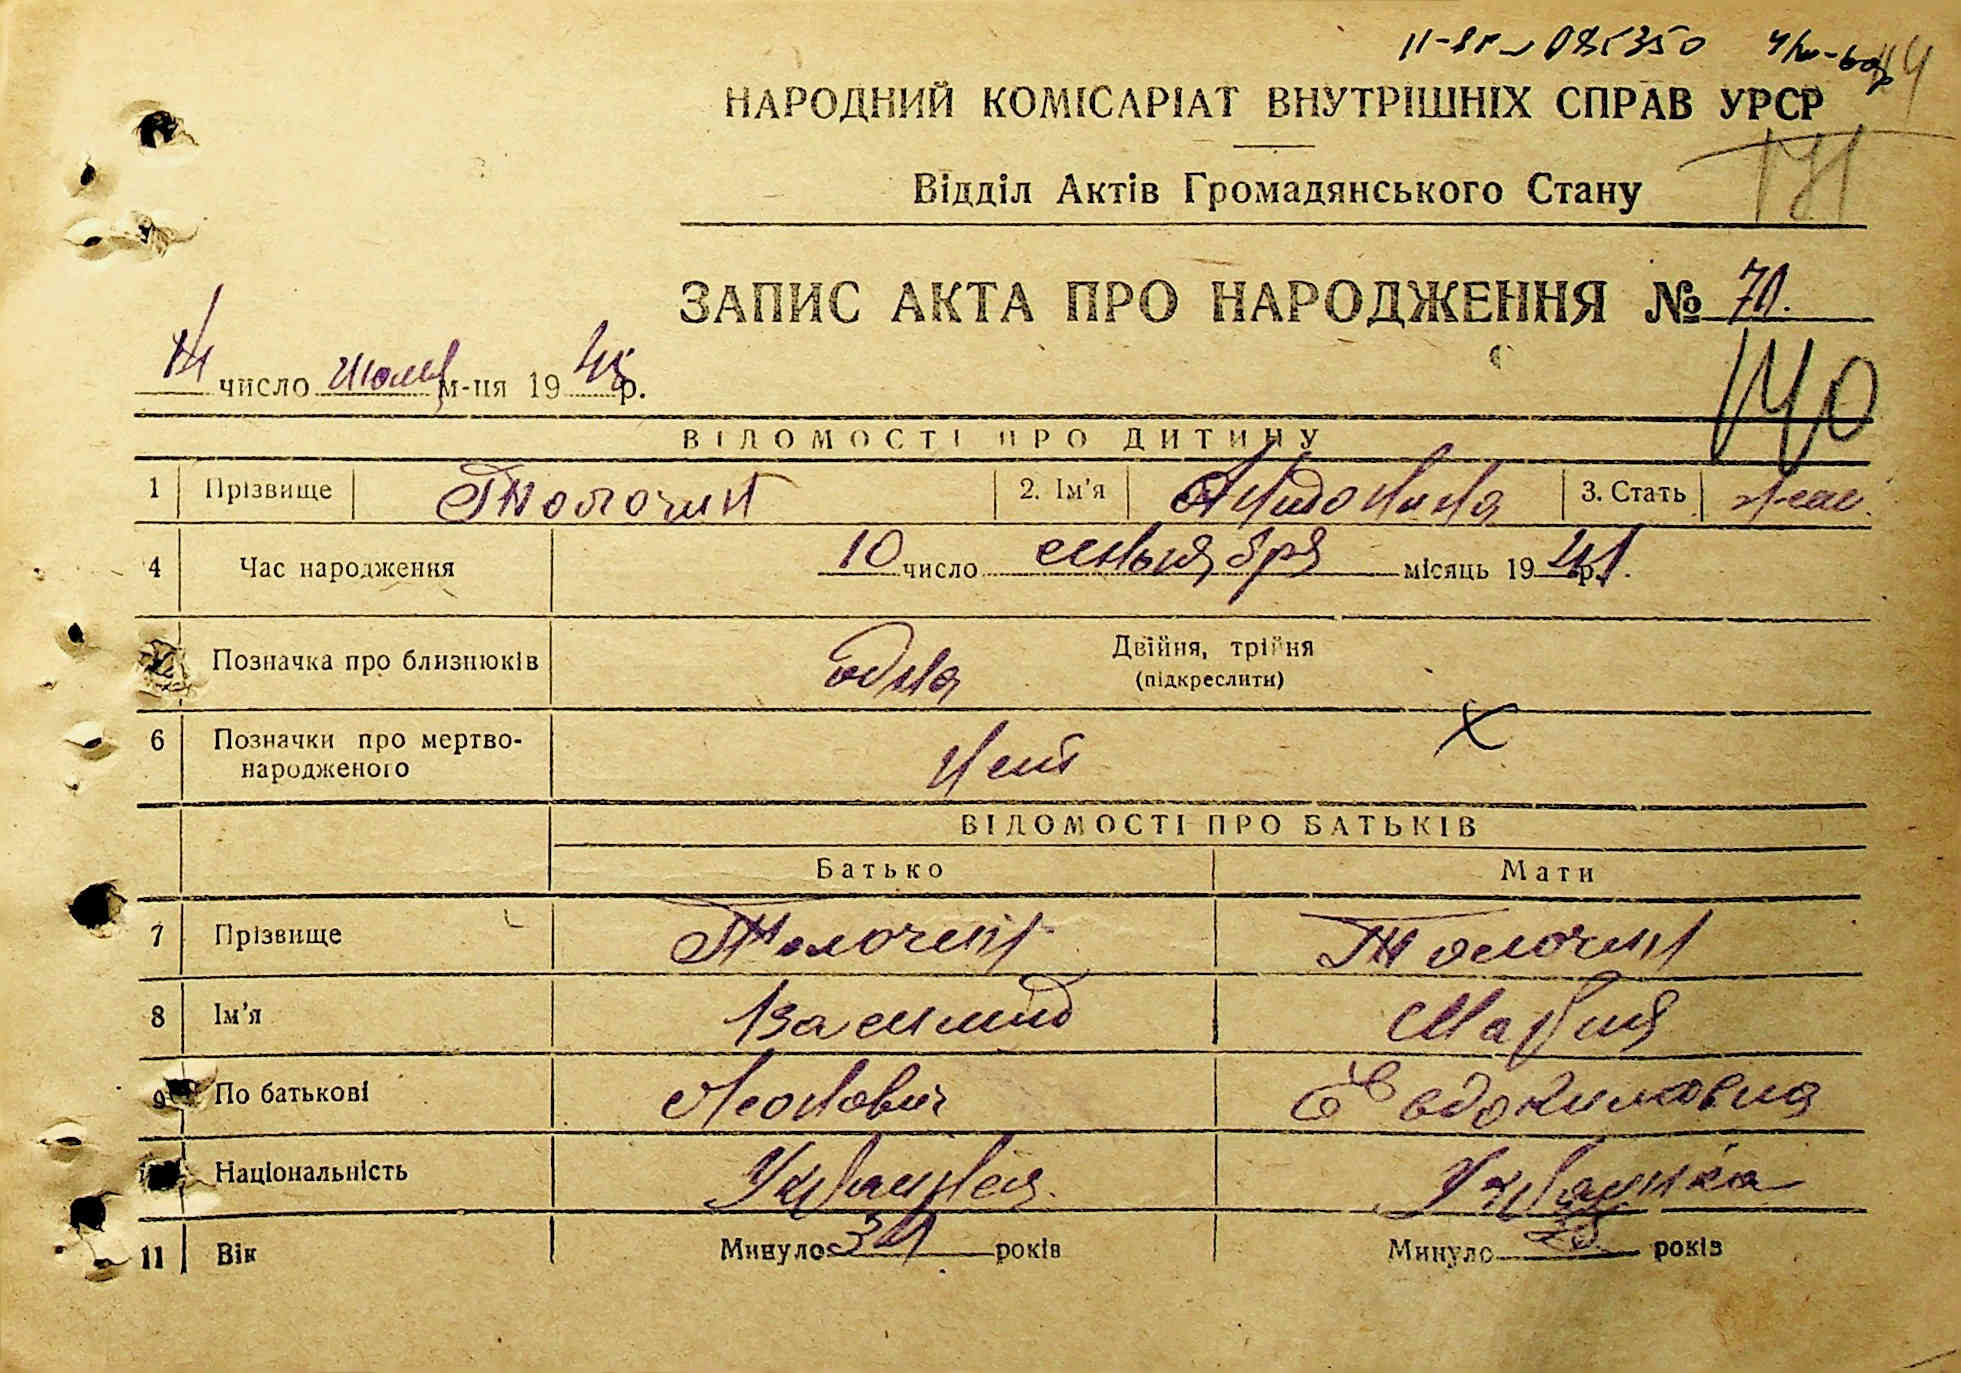 НАРОДНИЙ КОМІСАРІАТ ВНУТРІШНІХ СПРАВ УРСР
Відділ Актів Громадянського Стану
ЗАПИС АКТА ПРО НАРОДЖЕННЯ №
140
число июля м-ця 19 р.
ВІДОМОСТІ ПРО ДИТИНУ
1 Прізвище Толочин 2. Ім'я Антонина 3. Стать жен.
4 Час народження 10 число сентября місяць 19 41 р.
Позначка про близнюків одна Двійня, трійня
(підкреслити)
6 Позначки про мертво-
народженого Нет
ВІДОМОСТІ ПРО БАТЬКІВ
Батько Мати
7 Прізвище Толочин Толочин
8 Ім'я Василий Мария
9 По батькові Леонович Евдокимовна
Національність Украинец Украинка
11 Вік Минуло років Минуло років